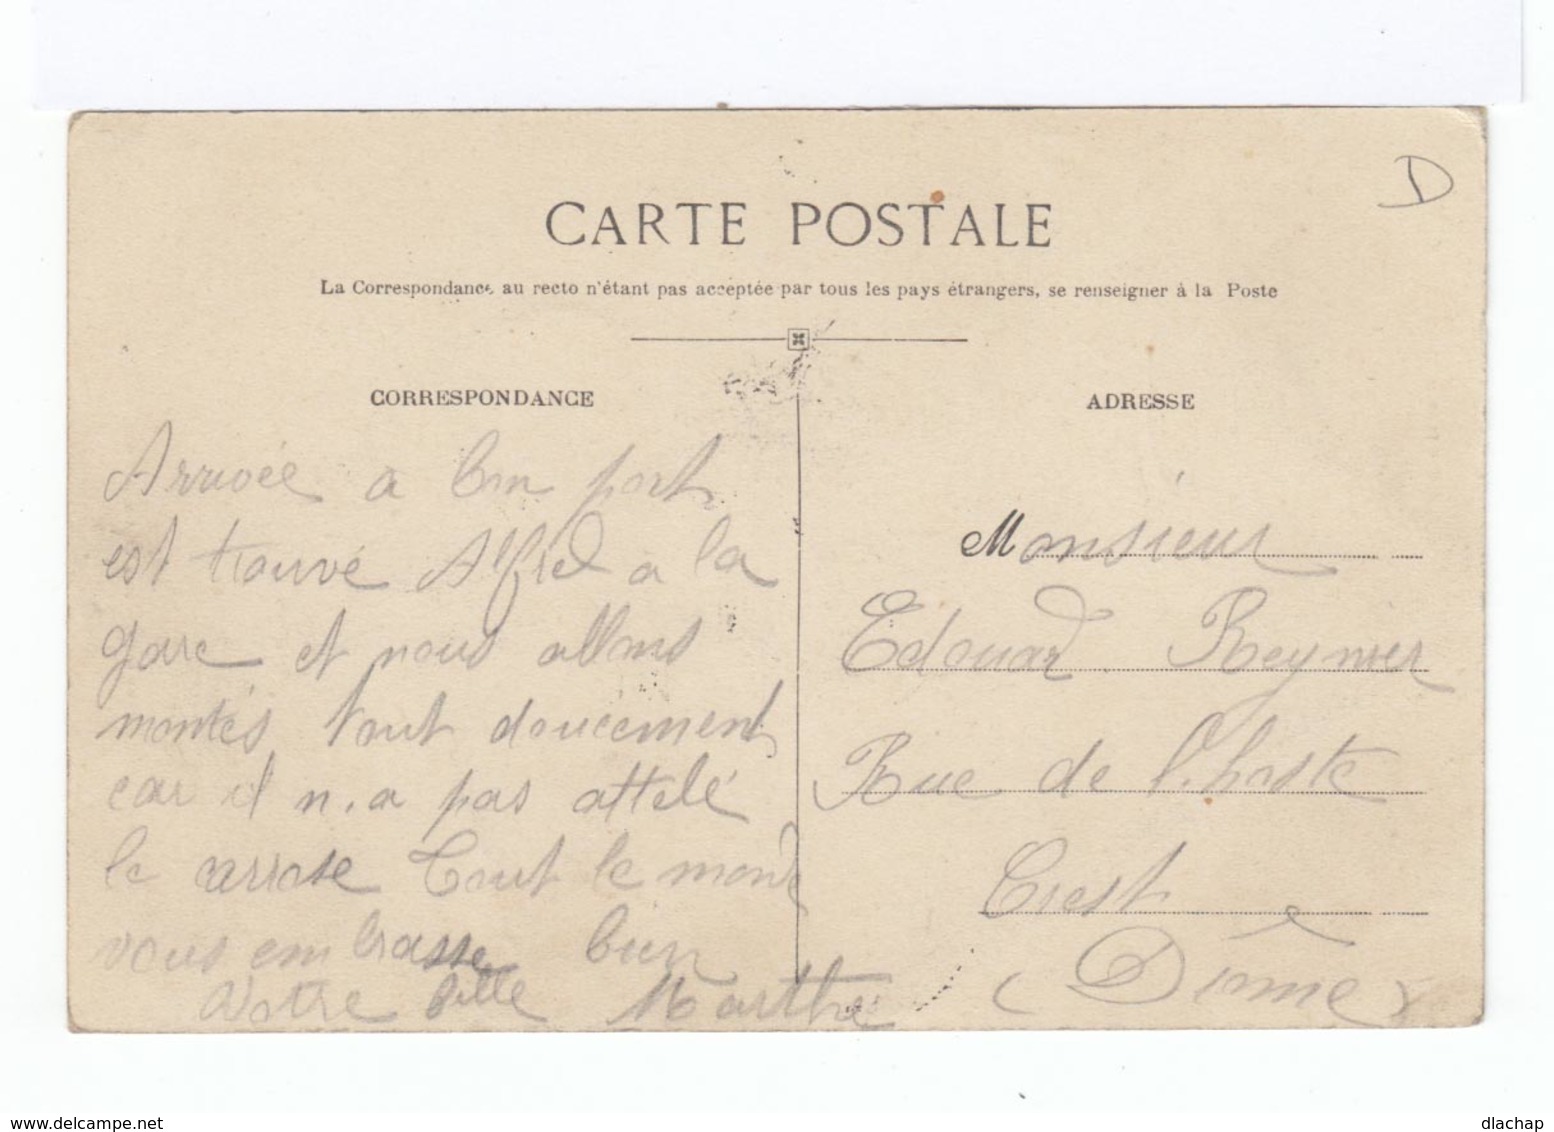 D
CARTE POSTALE
La Correspondance au recto n'étant pas acceptée par tous les pays étrangers, se renseigner à la Poste
CORRESPONDANCE
Arrivée a bon port
est trouvé Alfred a la
gare et nous allons
montés tout doucement
car il n.a pas attelé
le
Tout le monde
vous embrasse bien
Votre fille Marthe
ADRESSE
Monsieur
Edouard Reynier
Rue de l'.hoste
Crest
(Drôme)
www.delcampe.net
dlachap